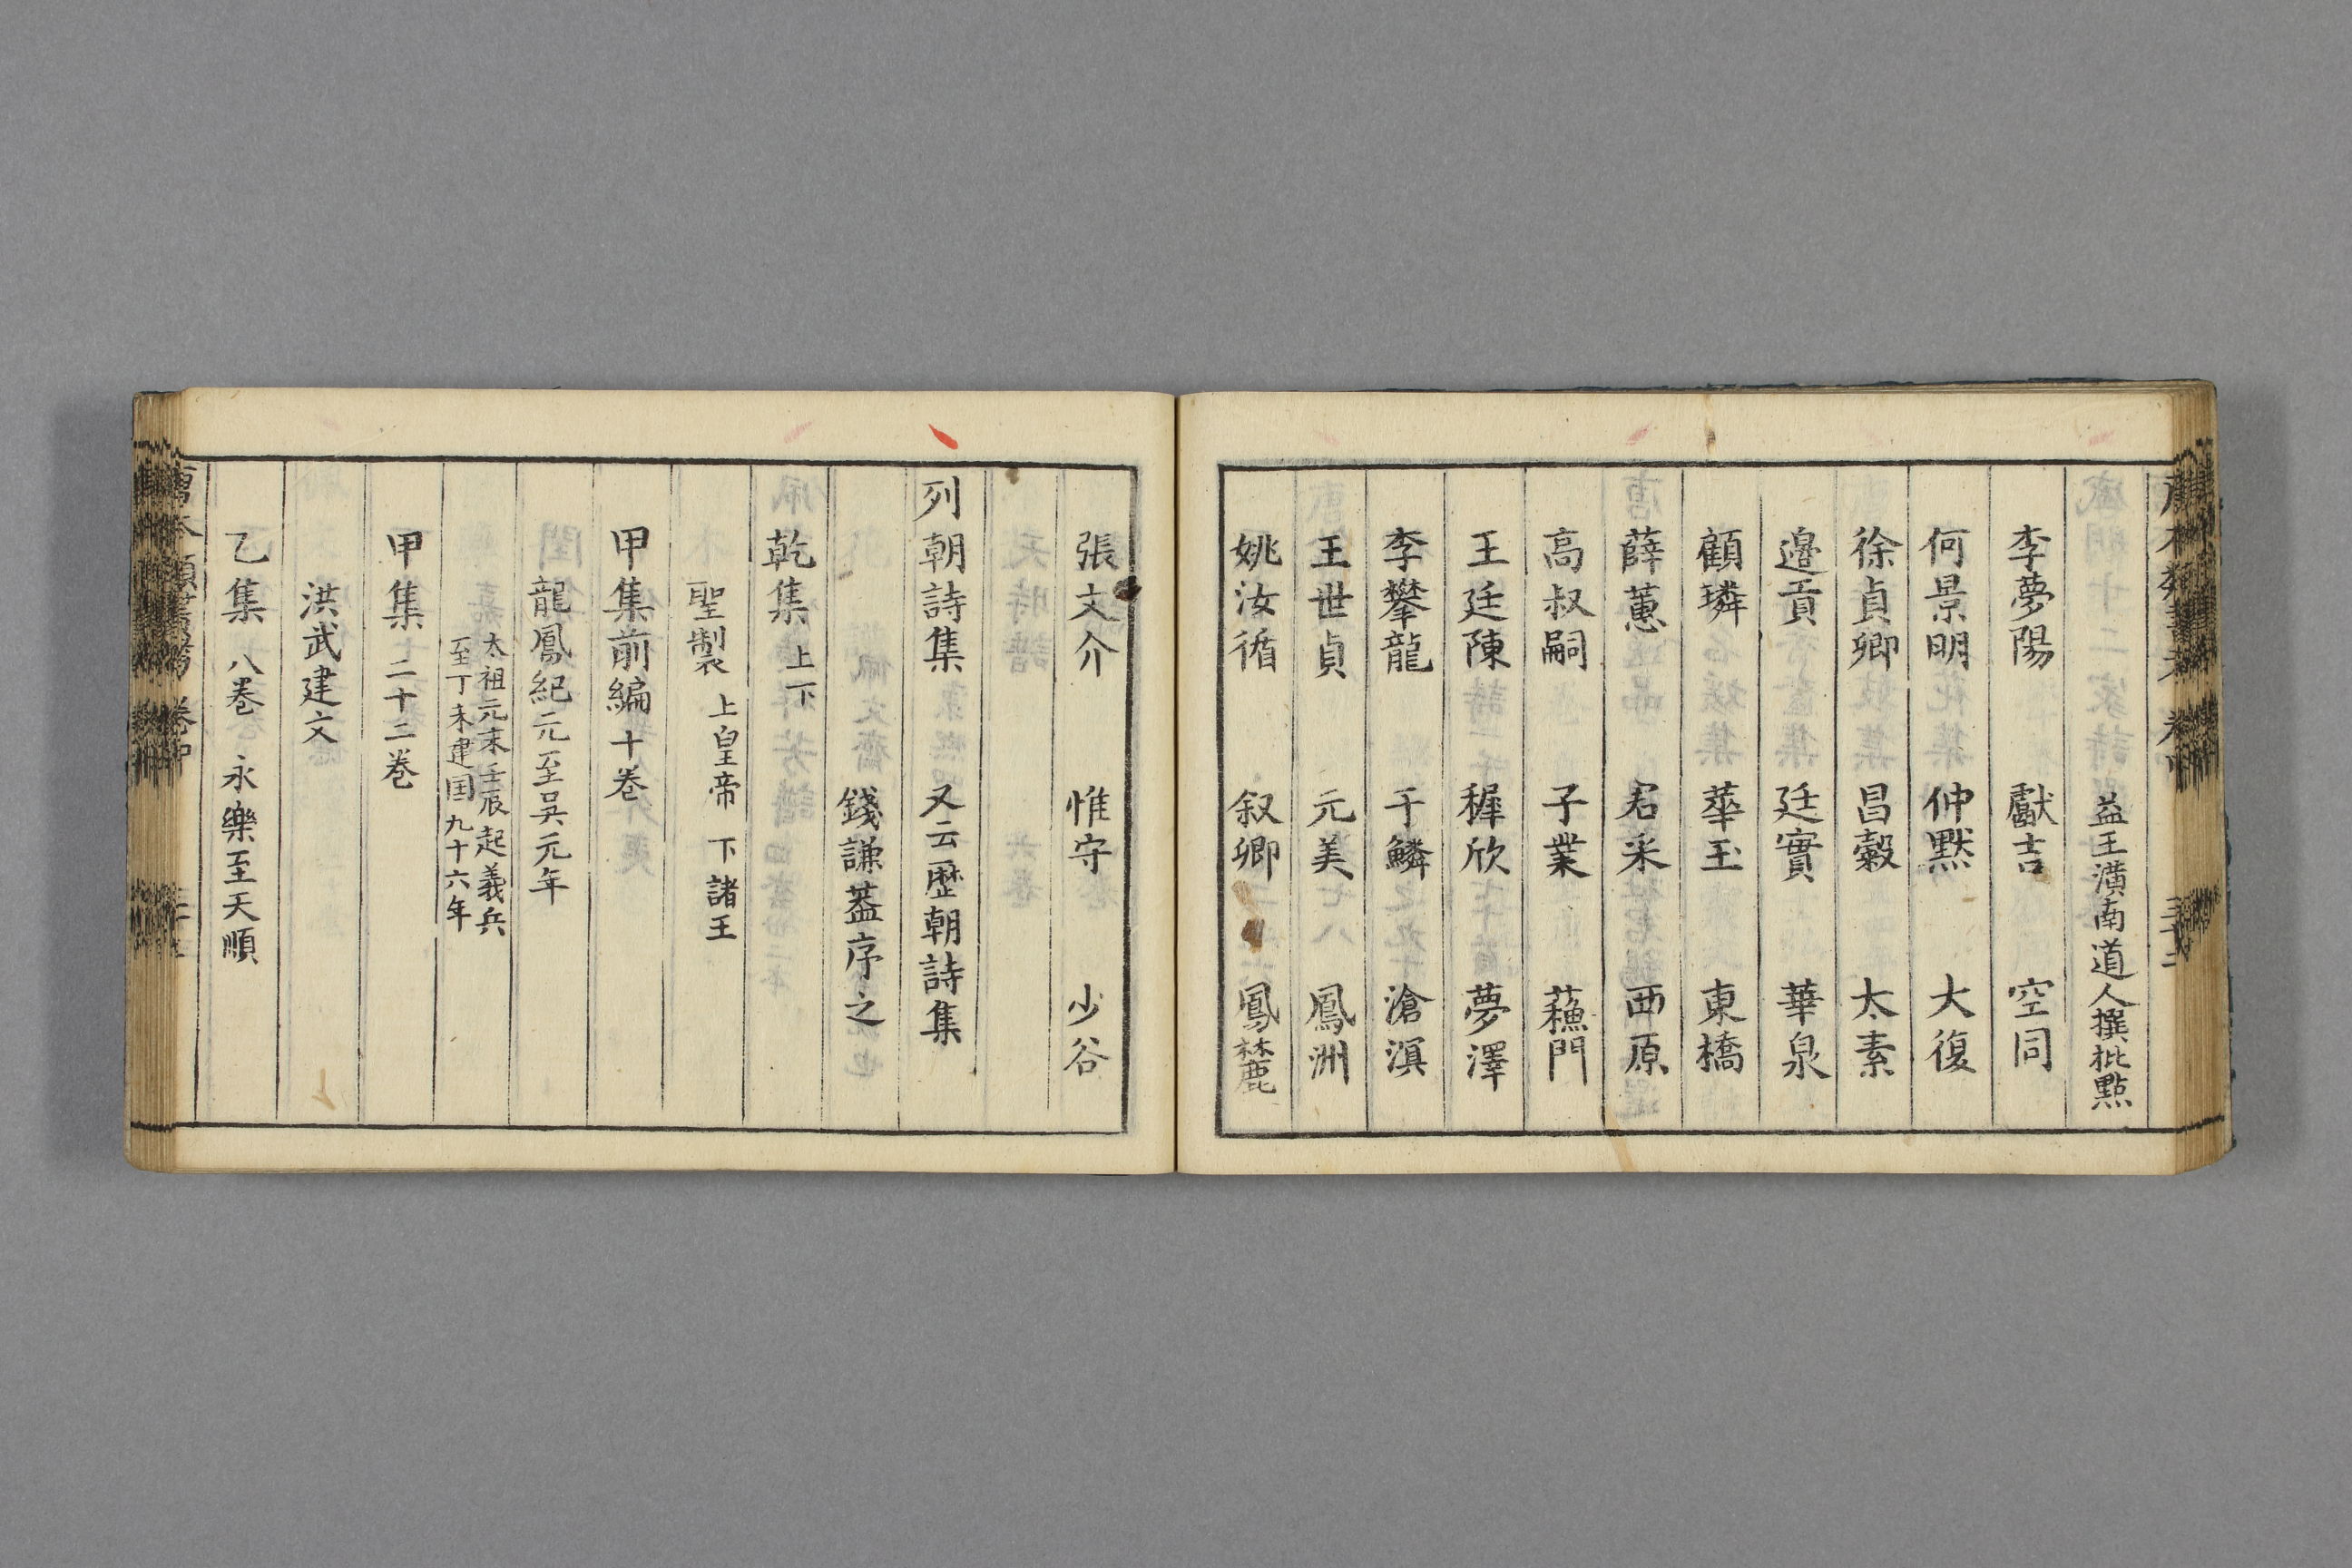 益王潢南道人撰批點
李夢陽 獻吉 空同
何景明 仲默 大復
徐貞卿 昌穀 太素
邉貢 廷實 華泉
顧璘 華玉 東橋
薛蕙 君采 西原
高叔嗣 子業 蘓門
王廷陳 穉欣 夢澤
李攀龍 于鱗 滄溟
王世貞 元美 鳳洲
姚汝循 叙卿 鳳麓
張文介 惟守 少谷
列朝詩集 又云歷朝詩集
錢謙葢序之
乾集 上下
聖製 上皇帝 下諸王
甲集前編 十卷
龍鳳紀元至吳元年
太祖元末壬辰起義兵
至丁未建囯九十六年
甲集 二十二卷
洪武建文
乙集 八卷 永樂至天順